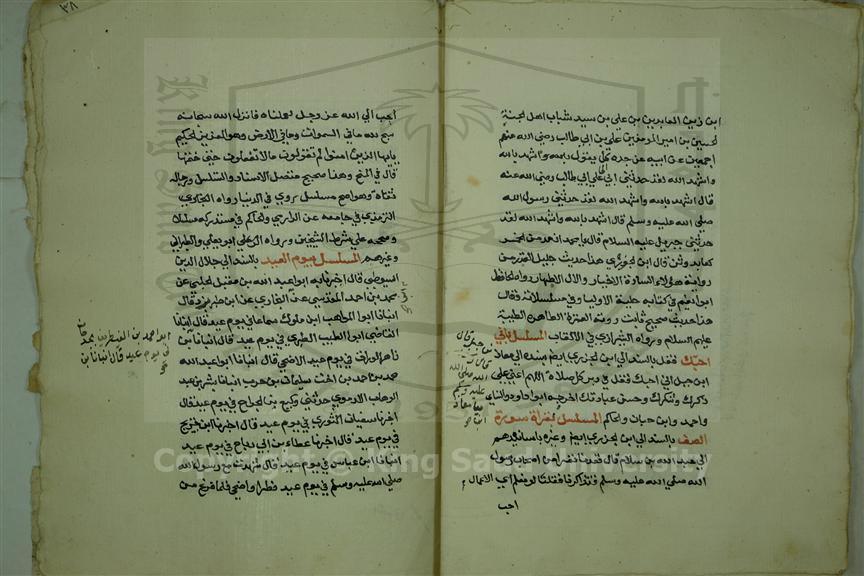 ابن زين العابدين بن علي بن سيد شباب اهل الجنة
الحسين بن امير المومنين علي بن ابي طالب رضي الله عنهم
اجمعين عن ابيه عن جده كل يقول
واشهد الله لقد حدثني ابي علي بن ابي طالب رضي الله عنه
قال اشهد بالله واشهد الله لقد حدثني رسول الله
صلي الله عليه وسلم قال اشهد بالله واشهد الله لقد
حدثني جبريل عليه السلام قال يا محمد ان مدمن الخمر
كعابد وثن قال ابن الجوزي هذا حديث جليل القدر من
رواية هؤلاء السادة الاخيار والال الاطهار رواه الحافظ
ابو انعيم في كتابه حلية الاوليا وفي مسلسلاته وقال
هذا حديث صحيح ثابت روته العترة الطاهرة الطيبة
عليهم السلام ورواه الشيرازي في الالقاب المسلسل باني
احبك فقل بالسند الي ابن الجزري ايضا بسنده الي معاذ
ابن جبل اني احبك فقل في دبر كل صلاة اللهم اعني علي
ذكرك وشكرك وحسن عبادتك اخرجه ابو داود والنساي
واحمد وابن حبان والحاكم المسلسل بقراة سورة
الصف بالسند الي ابن الجزري ايضا وغيره باسانيدهم
الي عبد الله بن سلام قال قعدنا نفر من اصحاب رسول
الله صلي الله عليه وسلم فتذاكرنا فقلنا لو نعلم اي الاعمال
احب
قال
صلي الله
عليه وسلم
يا معاذ
٣٨
احب الي الله عز وجل لعملناه فانزل الله سبحانه
سبح لله ما في السموات وما في الارض وهو العزيز الحكيم
يايها الذين امنوا لم تقولون مالا تفعلون حتي ختمها
قال في المنح وهذا صحيح متصل الاسناد والتسلسل ورجاله
ثقاة وهو اصح مسلسل يروي في الدنيا رواه البخاري
الترمذي في جامعه عن الدارمي والحاكم في مستدركه مسلسلا
وصححه علي شرط الشيخين ورواه ابو يعلي والطبراني
وغيرهم المسلسل بيوم العيد بالسند الي جلال الدين
السيوطي قال اخبرنا به ابو عبد الله بن مقبل الحلبي عن
محمد بن احمد المقدسي عن الفاري عن ابن طبرزد قال
انبانا ابو المواهب ابن ملوك سماعا في يوم عيد قال انبانا
القاضي ابو الطيب الطبري في يوم عيد قال انبانا ابن
في يوم عيد الاضحي قال انبانا ابو عبد الله
محمد بن احمد بن اخت سليمان بن حرب انبانا بشر بن عبد
الوهاب الاموي حدثني وكيع بن الجراح في يوم عيد قال
اخبرنا سفيان الثوري في يوم عيد قال اخبرنا ابن جريج
في يوم عيد قال اخبرنا عطاء بن ابي رباح في يوم عيد
انبانا ابن عباس في يوم عيد قال شهدت مع رسول الله
صلي الله عليه وسلم في يوم عيد فطر او اضحي فلما فرغ من
في يوم عيد قال انبانا بن
Copyright © King Saud University